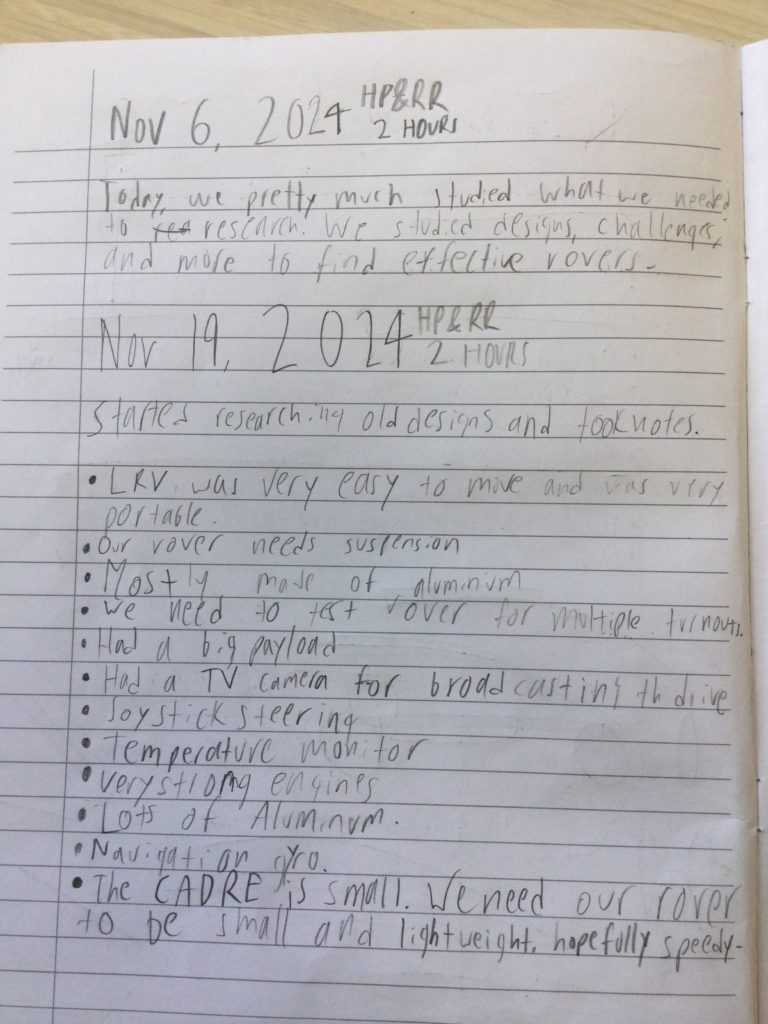 Nov 6, 2024 HP&RR
2 HOURS
Today, we pretty much studied what we needed
to research. We studied designs, challenges,
and more to find effective rovers.
Nov 19, 2024 HP&RR
2 HOURS
Started researching old designs and took notes.
• LRV was very easy to move and was very
portable.
• Our rover needs suspension
• Mostly made of aluminum
• We need to test rover for multiple turnouts.
• Had a big payload
• Had a TV camera for broadcasting th drive
• Joystick steering
• Temperature monitor
• Very strong engines
• Lots of Aluminum.
• Navigation gyro.
• The CADRE is small. We need our rover
to be small and lightweight, hopefully speedy.